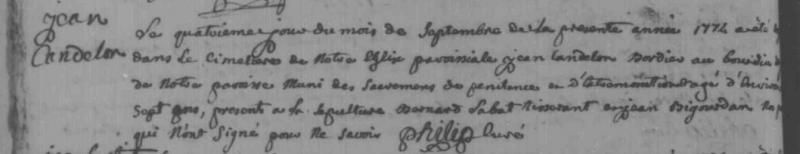 jean
Candelon
Le quatrieme jour du mois de Septembre de la presente année 1774 a été
dans le Cimetiere de Notre Eglise paroissiale jean Candelon Bordier au
de Notre paroisse Muni des Sacremens de penitence et d'extremonction agé d'Environ
Sept ans, presents a la sepulture Bernard Labat tisserant et jean Bigourdan
qui N'ont Signé pour Ne Savoir philip Curé